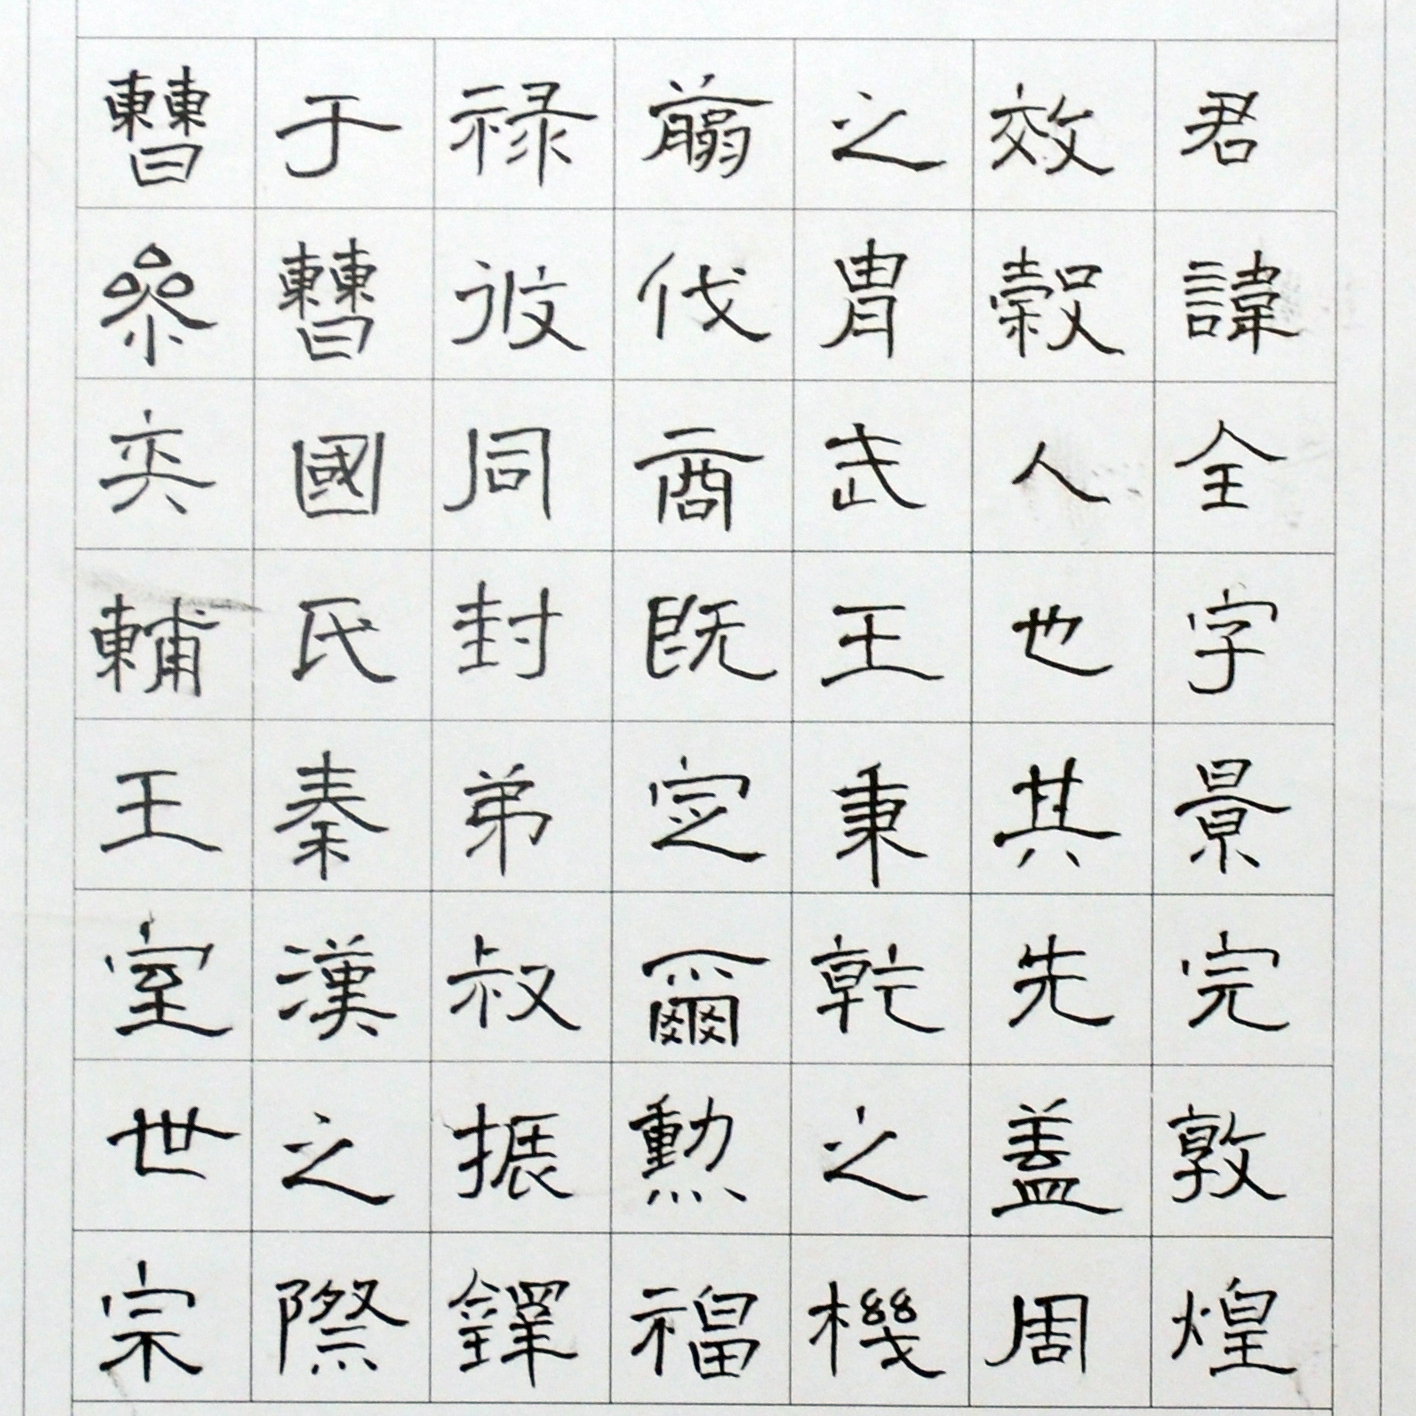 君諱全字景完敦煌
效穀人也其先盖周
之胄武王秉乾之機
翦伐商既定爾勲福
禄攸同封弟叔振鐸
于曹國氏焉秦漢之際
曹參夾輔王室世宗